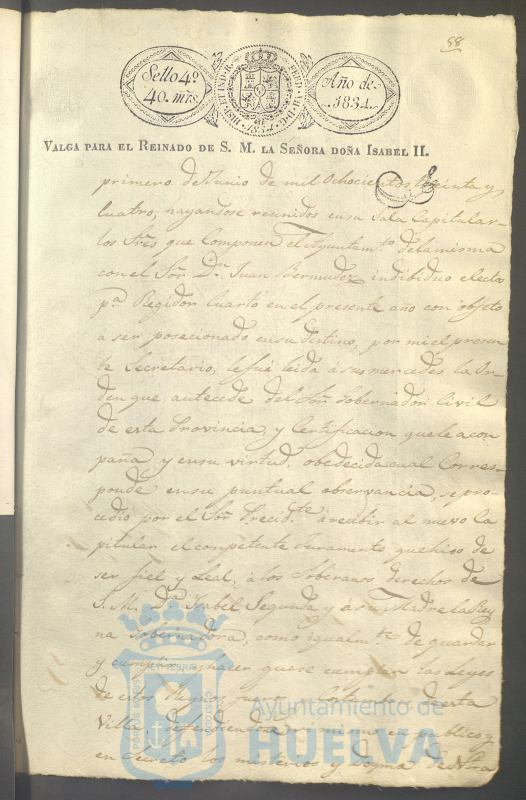 88
Sello 4.º
40. mrs
HISP. ET IND. R.
1834
Año de
1834.
VALGA PARA EL REINADO DE S. M. LA SEÑORA DOÑA ISABEL II.
primero de Junio de mil Ochocientos treinta y
cuatro, hayandose reunidos en su Sala Capitular
los Sres que Componen El Ayuntamto de la misma
con el Sor Dn Juan Bermudez indibiduo electo
pa Regidor Cuarto en el presente año con objeto
a ser posecionado en su destino, por mi el presen
te Secretario, le fué leida á sus mercedes la Or
den que antecede del Sor Gobernador Civil
de esta Provincia, y Certificacion que le acom
paña y en su virtud, obedecida cual Corres
ponde en su puntual observancia, se pro
cedio por el Sor Precidte á recibir al nuevo Ca
pitular el competente Juramento que hiso de
ser fiel y Leal, á los Soberanos derechos de
S. M. Da Isabel Segunda y á su Madre la Rey
na Gobernadora, como igualmte de guardar
y cumplir y hacer que se cumplan las Leyes
de estos Reynos de esta
Villa, defendiendo en publico y
en secreto los misterios y Dogma de Ntra
Ayuntamiento de
HUELVA